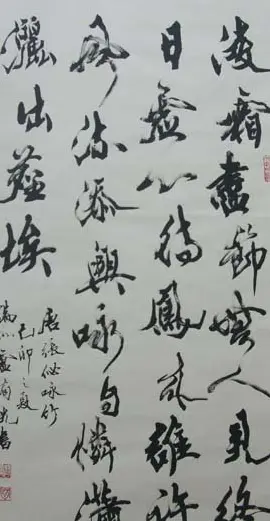 凌霜盡節無人見終
日虛心待鳳來誰許
風流添興咏自憐瀟
灑出塵埃
唐張佖咏竹
己卯之夏
書